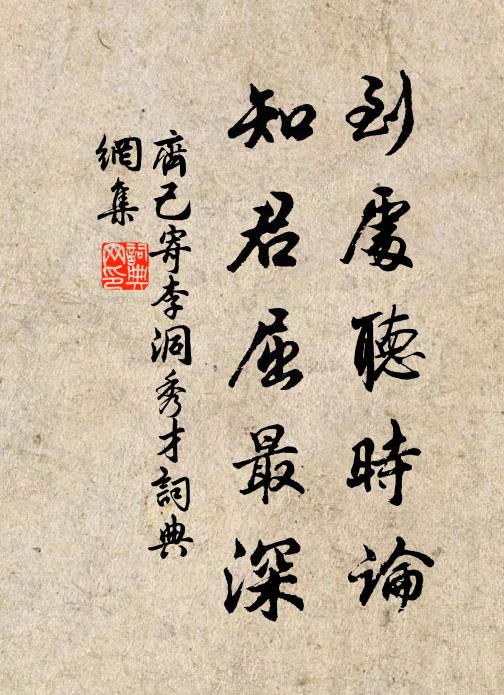 到處聽時論
知君屈最深
齊己寄李洞秀才詞典
網集
詞典
网印